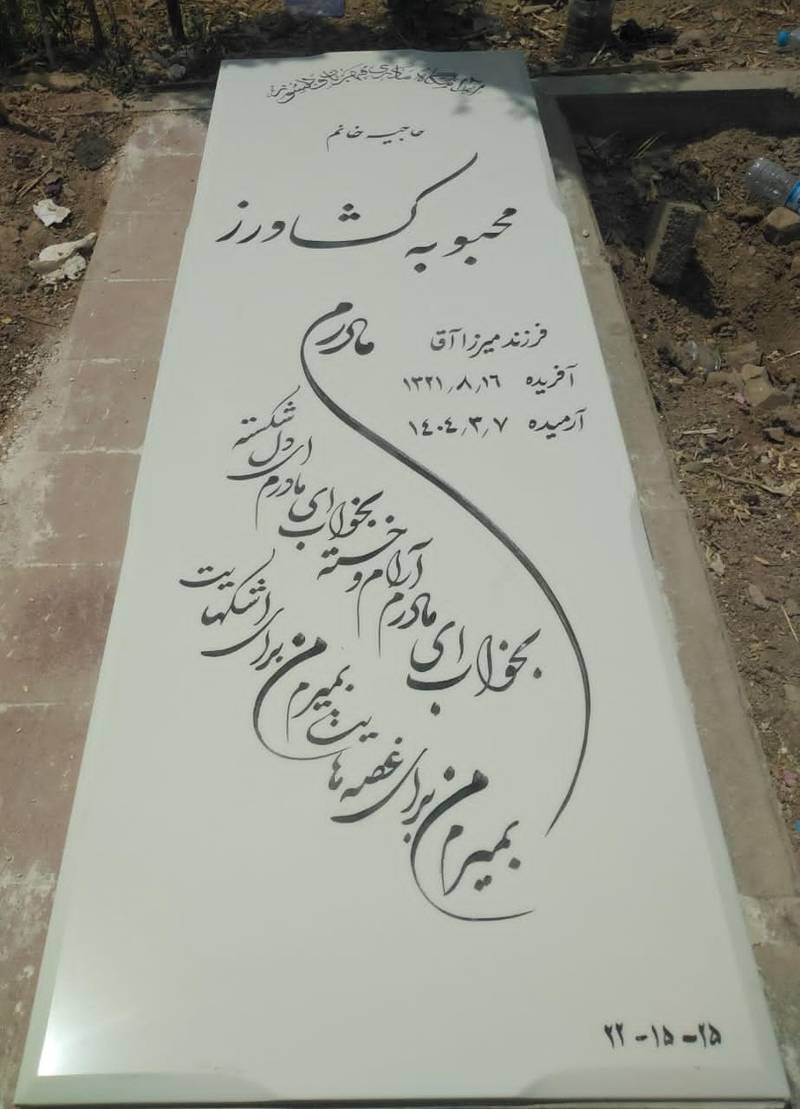 آرامگاه مادری مهربان و دلسوز
حاجیه خانم
محبوبه کشاورز
فرزند میرزا آقا
آفریده ۱۳۲۱٫۸٫۱۶
آرمیده ۱۴۰۴٫۳٫۷
مادرم
بخواب ای مادرم آرام و خسته
بخواب ای مادرم ای دل شکسته
بمیرم من برای غصه هایت
بمیرم من برای اشکهایت
۲۲-۱۵-۲۵